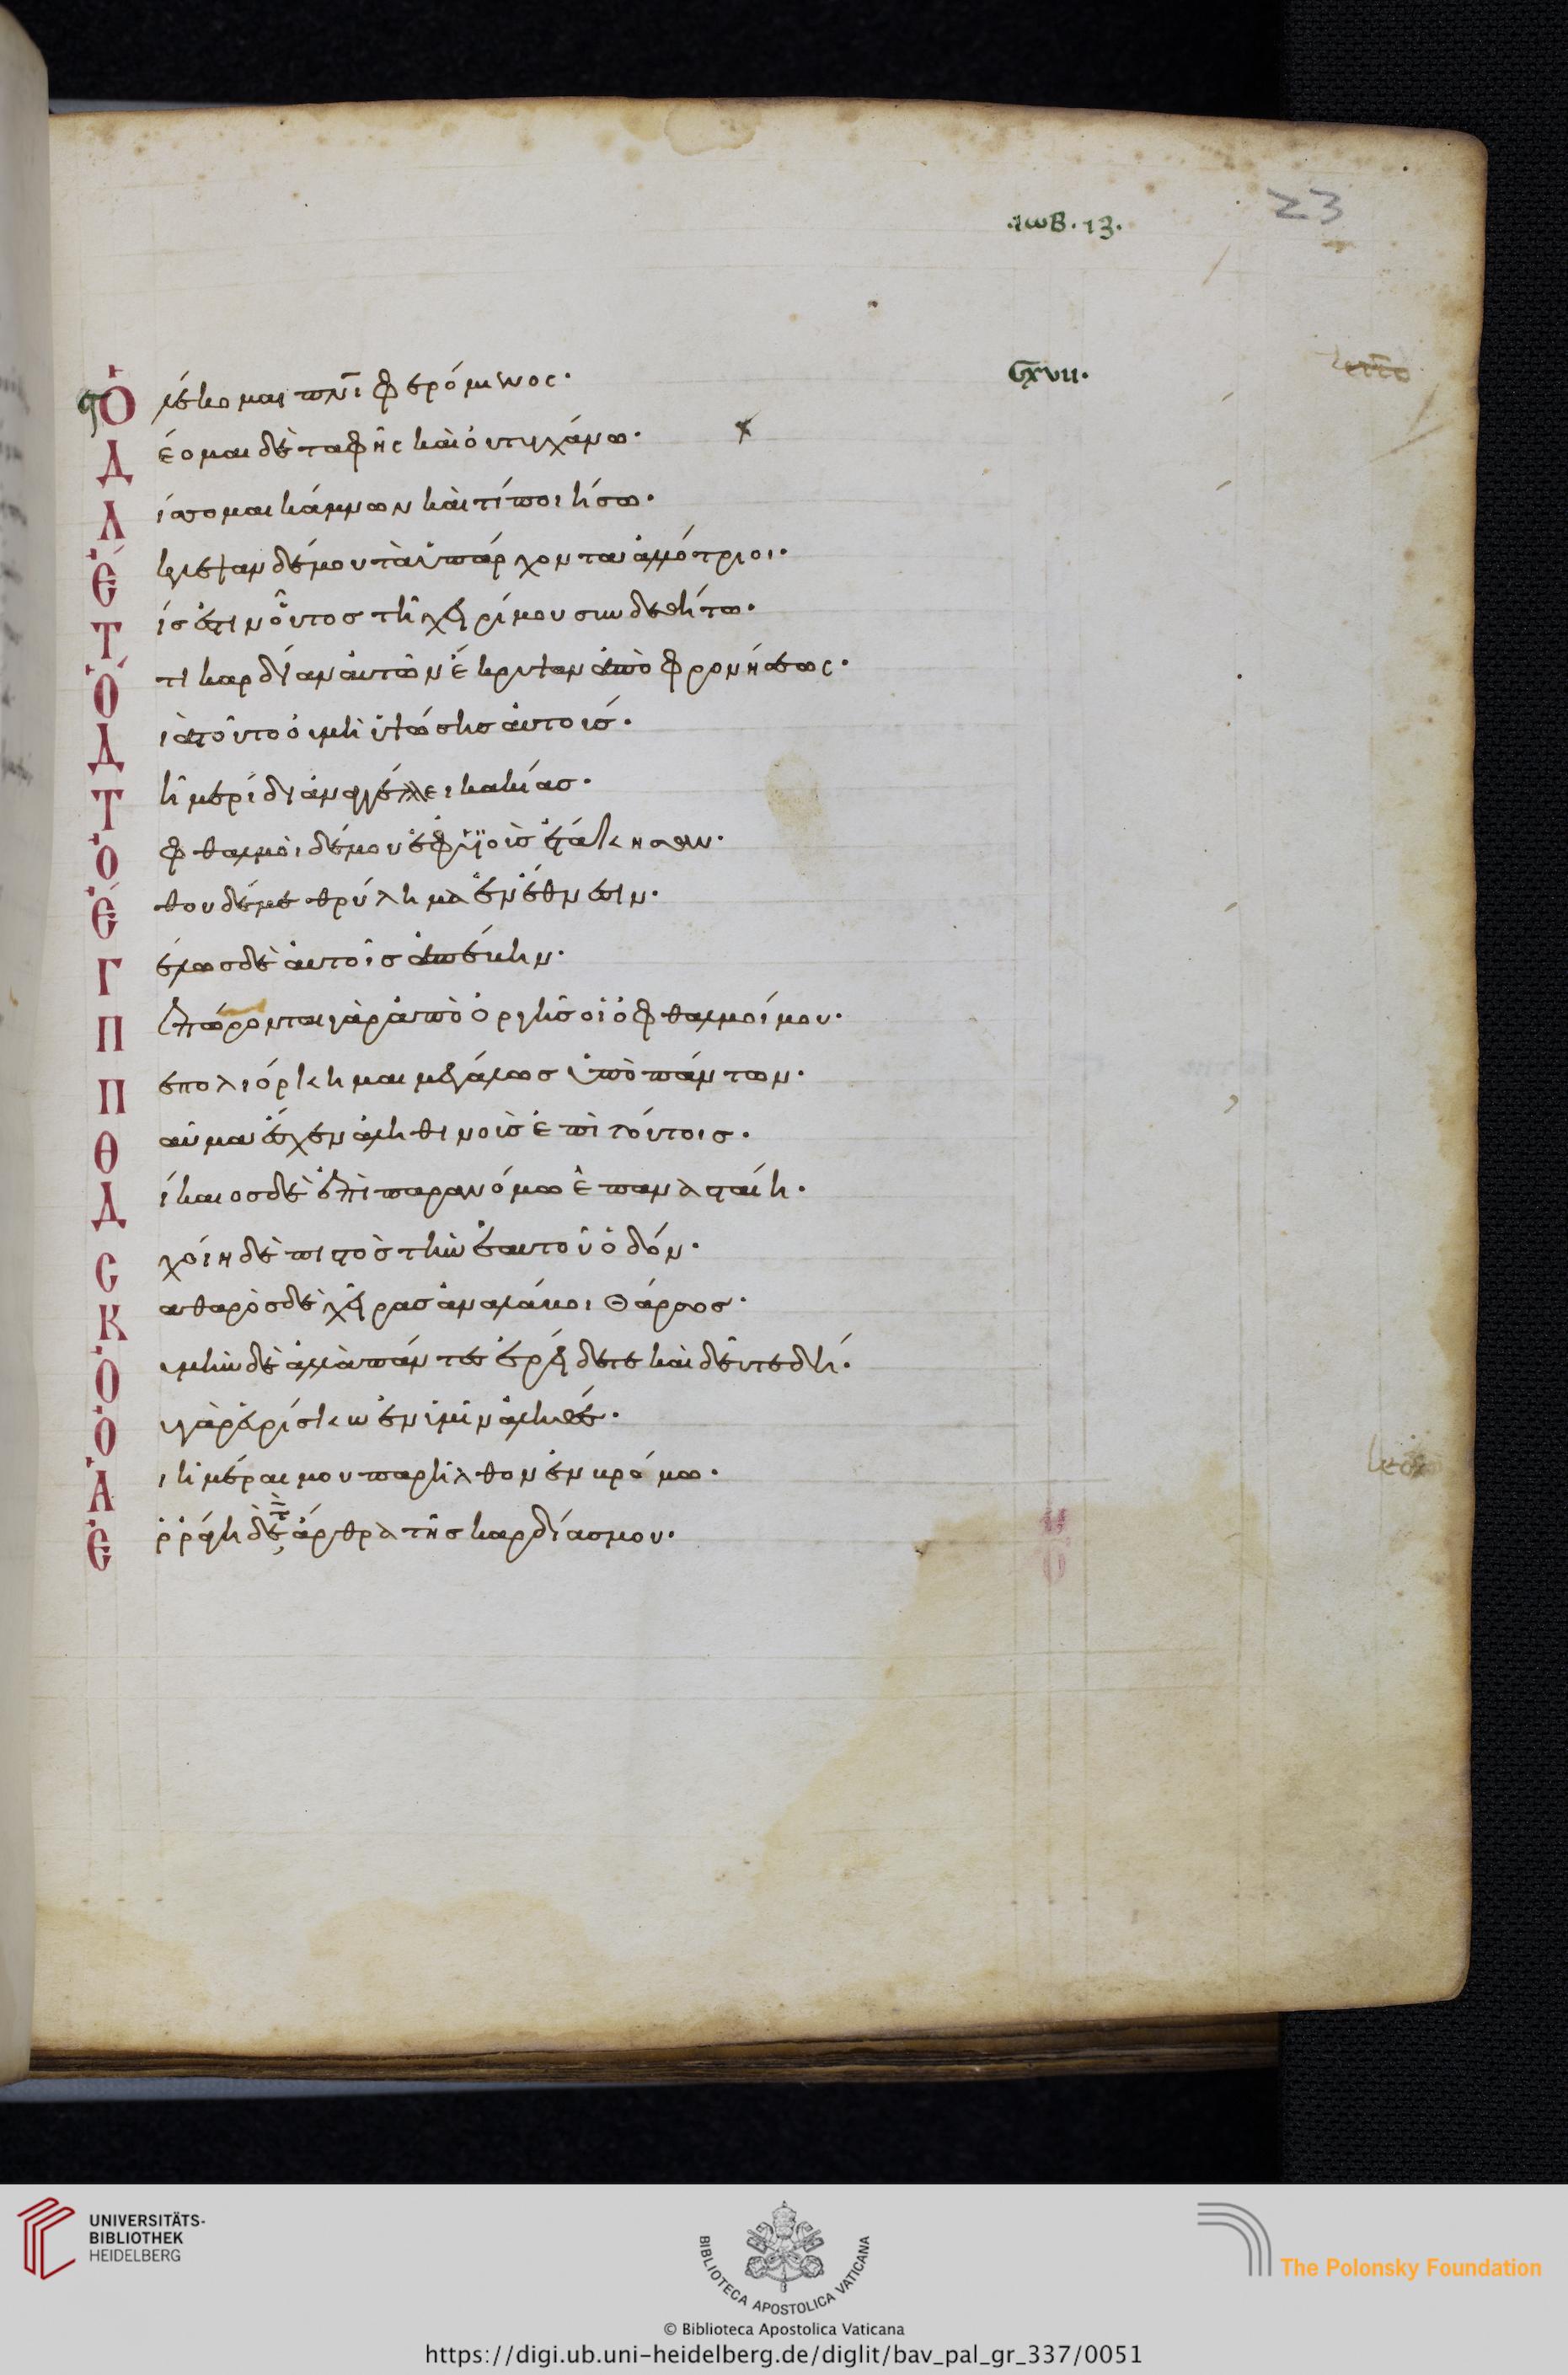 .ιωβ.ιζ.
23
Cxvii.
Ὀλέκομαι πνι φερόμενος·
Δέομαι δὲ ταφῆς καὶ οὐ τυγχάνω·
Λίσσομαι κάμνων καὶ τί ποιήσω·
Ἔκλεψαν δέ μου τὰ ὑπάρχοντα ἀλλότριοι·
Τίς ἐστιν οὗτος τῇ χειρί μου συνδεθήτω·
Ὅτι καρδίαν αὐτῶν ἔκρυψαν ἀπὸ φρονήσεως·
Διὰ τοῦτο οὐ μὴ ὑψώσης αὐτούς·
Τῇ μερίδι ἀναγγέλλει κακίας·
Ὀφθαλμοὶ δέ μου ἐφ υἱοῖς ἐτάκησαν·
Ἔθου δέ με θρύλημα ἐν ἔθνεσιν·
Γέλως δὲ αὐτοῖς ἀπέβην·
Πεπώρονται γὰρ ἀπὸ ὀργῆς οἱ ὀφθαλμοί μου·
Πεπολιόρκημαι μεγάλως ὑπὸ πάντων·
Θαῦμα ἔσχεν ἀληθινοὶς ἐπὶ τούτοις·
Δίκαιος δὲ ἐπὶ παρανόμω ἐπανασταίη·
Σχοίη δὲ πιστὸς τὴν ἑαυτοῦ ὁδόν·
Καθαρὸς δὲ χεῖρας ἀναλάβοι θάρσος·
Οὐ μὴν δὲ ἀλλὰ πάντες ἐρείδετε καὶ δεῦτε δή·
Οὐ γὰρ εὑρίσκω ἐν ὑμῖν ἀληθές·
Αἱ ἡμέραι μου παρῆλθον ἐν βρόμω·
Ἐρράγη δὲ τὰ ἄρθρα τῆς καρδίας μου·
UNIVERSITÄTS-
BIBLIOTHEK
HEIDELBERG
BIBLIOTECA APOSTOLICA VATICANA
The Polonsky Foundation
© Biblioteca Apostolica Vaticana
https://digi.ub.uni-heidelberg.de/diglit/bav_pal_gr_337/0051